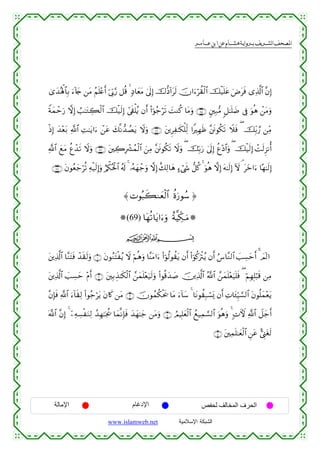 المصحف الشريف برواية هشام عن ابن عامر
إِنَّ ٱلَّذِى فَرَضَ عَلَيْكَ ٱلْقُرْءَانَ لَرَآدُّكَ إِلَىٰ مَعَادٍ قُل رَّبِّى أَعْلَمُ مَن جَآءَ بِٱلْهُدَىٰ
وَمَنْ هُوَ فِى ضَلَٰلٍ مُّبِينٍ وَمَا كُنتَ تَرْجُوٓا۟ أَن يُلْقَىٰٓ إِلَيْكَ ٱلْكِتَٰبُ إِلَّا رَحْمَةً
مِّن رَّبِّكَ فَلَا تَكُونَنَّ ظَهِيرًا لِّلْكَٰفِرِينَ وَلَا يَصُدُّنَّكَ عَنْ ءَايَٰتِ ٱللَّهِ بَعْدَ إِذْ
أُنزِلَتْ إِلَيْكَ وَٱدْعُ إِلَىٰ رَبِّكَ وَلَا تَكُونَنَّ مِنَ ٱلْمُشْرِكِينَ وَلَا تَدْعُ مَعَ ٱللَّهِ
إِلَٰهًا ءَاخَرَ لَآ إِلَٰهَ إِلَّا هُوَ كُلُّ شَىْءٍ هَالِكٌ إِلَّا وَجْهَهُۥ لَهُ ٱلْحُكْمُ وَإِلَيْهِ تُرْجَعُونَ
﴿ سُورَةُ ٱلْعَنكَبُوتِ ﴾
مَكِّيَّةٌ وَءَايَاتُهَا (69)
بسم الله الرحمن الرحيم
الٓمٓ أَحَسِبَ ٱلنَّاسُ أَن يُتْرَكُوٓا۟ أَن يَقُولُوٓا۟ ءَامَنَّا وَهُمْ لَا يُفْتَنُونَ وَلَقَدْ فَتَنَّا ٱلَّذِينَ
مِن قَبْلِهِمْ فَلَيَعْلَمَنَّ ٱللَّهُ ٱلَّذِينَ صَدَقُوا۟ وَلَيَعْلَمَنَّ ٱلْكَٰذِبِينَ أَمْ حَسِبَ ٱلَّذِينَ
يَعْمَلُونَ ٱلسَّيِّـَٔاتِ أَن يَسْبِقُونَا سَآءَ مَا يَحْكُمُونَ مَن كَانَ يَرْجُوا۟ لِقَآءَ ٱللَّهِ فَإِنَّ
أَجَلَ ٱللَّهِ لَـَٔاتٍ وَهُوَ ٱلسَّمِيعُ ٱلْعَلِيمُ وَمَن جَٰهَدَ فَإِنَّمَا يُجَٰهِدُ لِنَفْسِهِۦٓ إِنَّ ٱللَّهَ
لَغَنِىٌّ عَنِ ٱلْعَٰلَمِينَ
الحرف المخالف لحفص الإدغام الإمالة
الشبكة الإسلامية www.islamweb.net